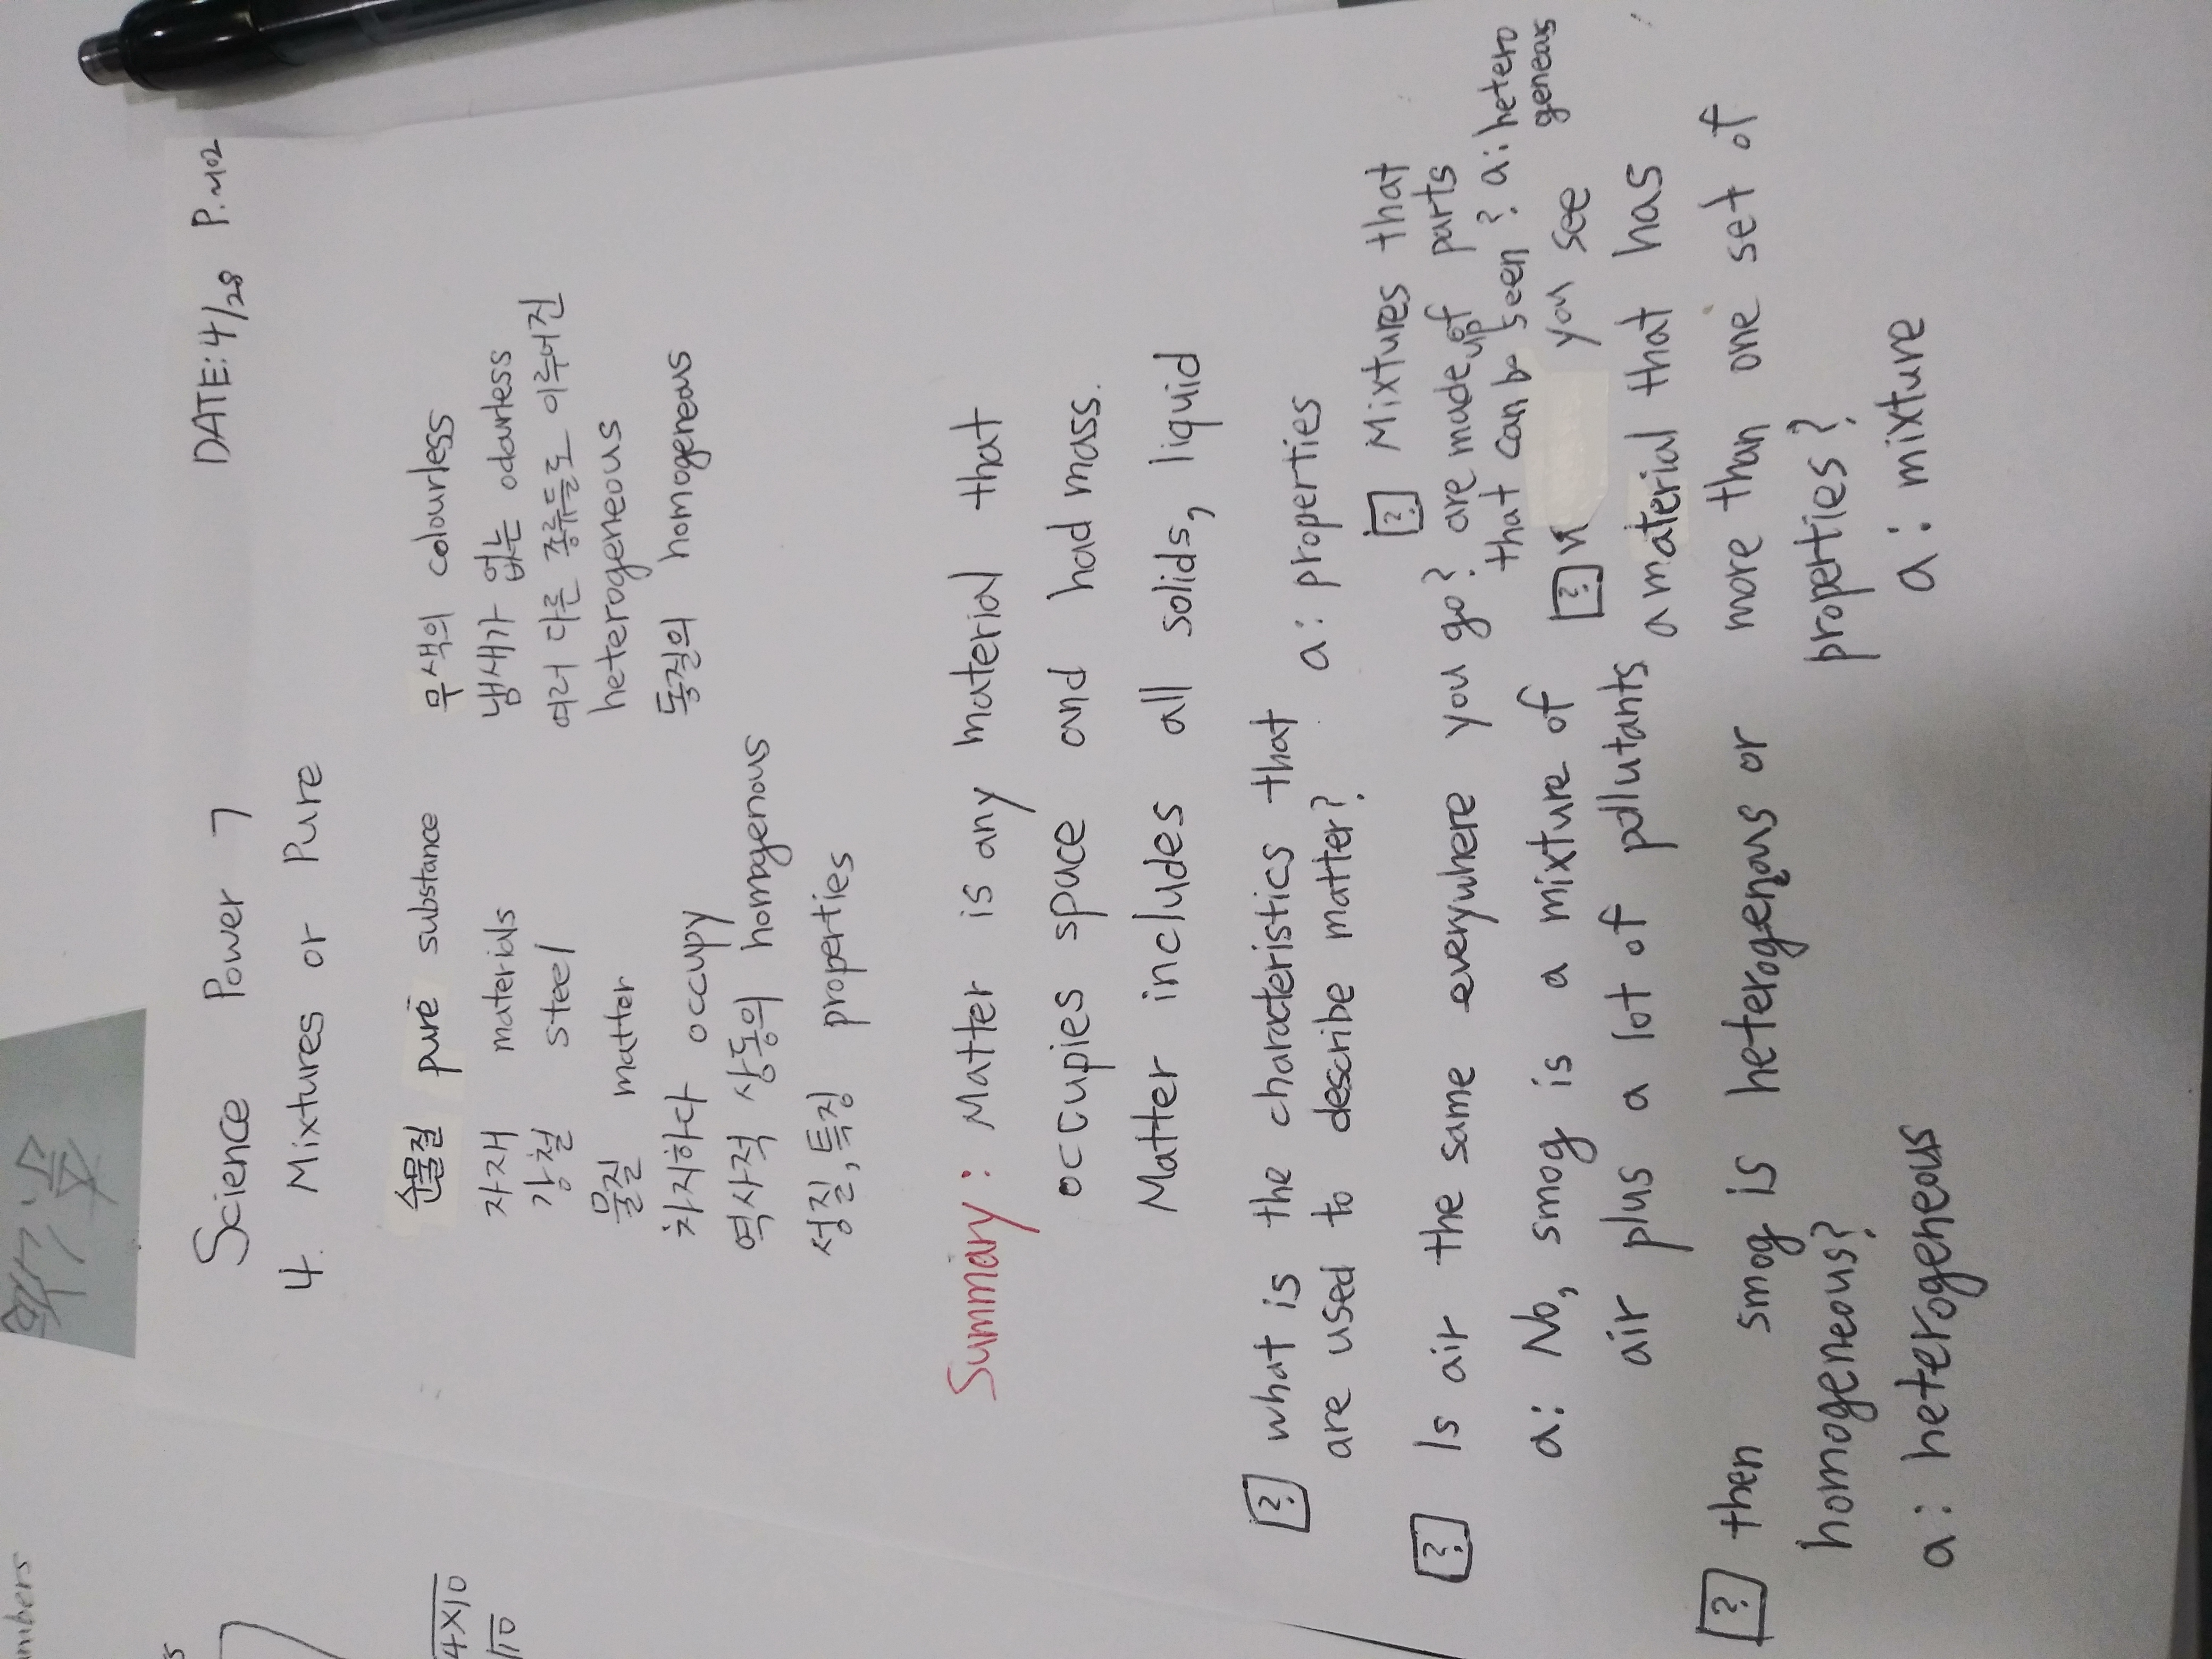 Science Power 7
DATE: 4/28 P.102
4. Mixtures or Pure
순물질 pure substance
자재 materials
강철 steel
물질 matter
차지하다 occupy
역사적 상동의 homogenous
성질, 특징 properties
무색의 colourless
냄새가 없는 odourless
여러 다른 종류들로 이루어진
heterogeneous
동질의 homogeneous
Summary: Matter is any material that
occupies space and had mass.
Matter includes all solids, liquid
[?] what is the characteristics that
are used to describe matter?
a: properties
[?] Is air the same everywhere you go?
a: No, smog is a mixture of
air plus a lot of pollutants
[?] then smog is heterogenous or
homogeneous?
a: heterogeneous
[?] Mixtures that
are made up of parts
that can b seen? a: hetero
geneous
[?] you see
a material that has
more than one set of
properties?
a: mixture
mbers
4×10